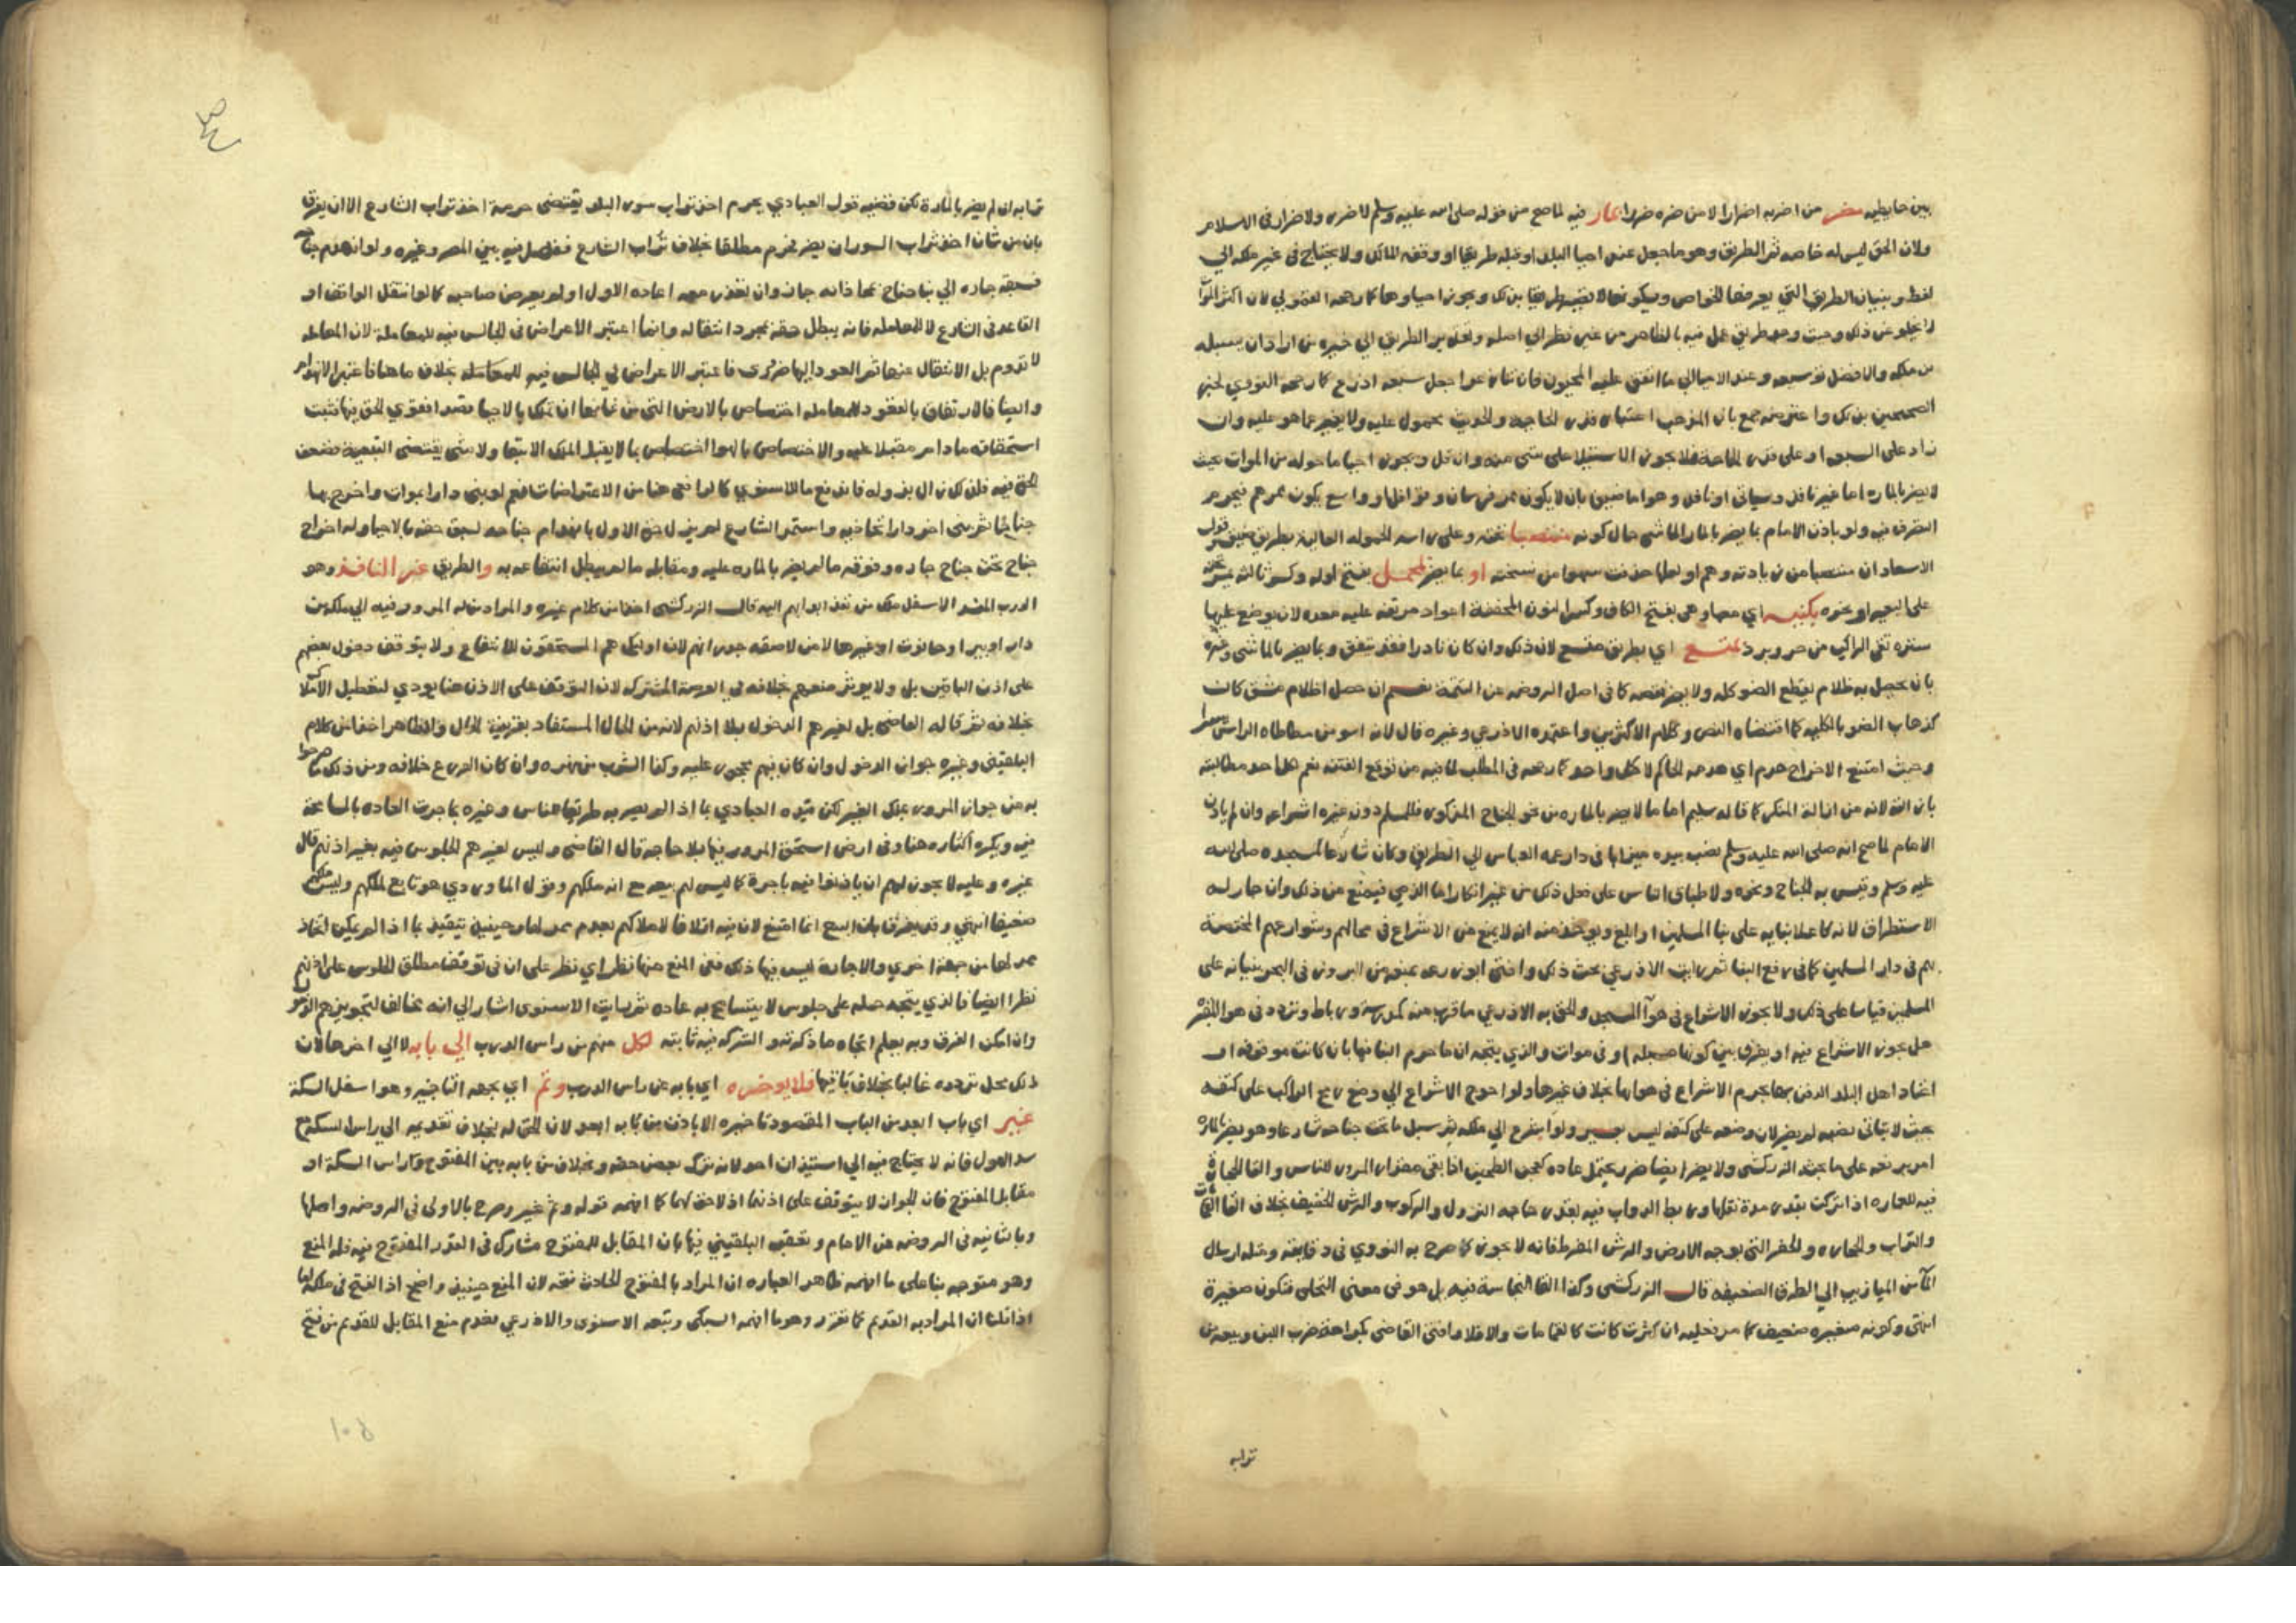 بين حايطيه مضر من اضر به اضرارا لا من ضره ضررا بمار فيه لما صح من قوله صلى الله عليه وسلم لا ضرر ولا ضرار في الاسلام
ولان الحق ليس له خاصه ثم الطريق وهو ما جعل عند احيا البلد او قبله طريقا او وقفه المالك ولا يحتاج في غير ملكه الي
لفظ وبنيان الطريق التي يعرفها الخواص ويسكونها لا تصير طريقا بذلك ويجوز احياوها كما رجحه القمولي لان اكثر الموات
لا يخلو عن ذلك وحيث وجد طريق عمل فيه بالظاهر من غير نظر الي اصله وتقدير الطريق الي خيره من اراد ان يسبله
من ملكه والافضل توسيعه وعند الاحيا الي ما اتفق عليه المحيون فان تنازعوا جعل سبعه اذرع كما رجحه النووي لخبر
الصحيحين بذلك واعترضه جمع بان المذهب اعتبار قدر الحاجه والحديث محمول عليه ولا يغير عما هو عليه وان
زاد على السبعه او على قدر الحاجه فلا يجوز الاستيلا على شي منه وان قل ويجوز احيا ما حوله من الموات بحيث
لا يضر بالماره اما غير نافذ وسياتي او نافذ وهو اما ضيق بان لا يكون ممر فرسان وقوافل او واسع يكون ممرهم فيحرم
التصرف فيه ولو باذن الامام بما يضر بالمار الماشي حال كونه منتصبا تحته وعلى راسه الحموله العاليه بطريق ضيق وقول
الاسعاد ان منتصبا من زيادته وهم او لعلها حذفت سهوا من نسخته او بما يضر بمحمل بفتح اوله وكسر ثالثه
على البعير او نحوه بكنيسه اي معها وهي بفتح الكاف وكسر النون المخففة اعواد مرتفعه عليه معده لان يوضع عليها
ستره تقي الراكب من حر وبرد بمتسع اي بطريق متسع لان ذلك وان كان نادرا فقد يتفق وبما يضر بالماشي وغيره
بان يحصل به ظلام يقطع الضو كله ولا يضر نقصه كما في اصل الروضه عن التتمة نعم ان حصل اظلام مشق كان
كذهاب الضو بالكليه كما اقتضاه النص وكلام الاكثرين واعتمده الاذرعي وغيره قال لانه اسو من مطاطاه الراس
وحيث امتنع الاخراج هدمه اي هدمه الحاكم لا كل واحد كما رجحه في المطلب لما فيه من توقع الفتنه نعم لكل احد مطالبته
بازالته لانه من ازالة المنكر كما قاله سليم اما ما لا يضر بالماره من نحو الجناح المذكور فللمسلم دون غيره اشراعه وان لم ياذن
الامام لما صح انه صلى الله عليه وسلم نصب بيده ميزابا في دار عمه العباس الي الطريق وكان شارعا لمسجده صلى الله
عليه وسلم وقيس به الجناح ونحوه ولاطباق الناس على فعل ذلك من غير انكار اما الذمي فيمنع من ذلك وان جاز له
الاستطراق لانه كاعلا بنايه على بنا المسلمين او ابلغ ويوخذ منه انه لا يمنع من الاشراع في محالهم وشوارعهم المختصة
بهم في دار المسلمين كما في رفع البنا ثم رايت الاذرعي بحث ذلك وافتى ابو زرعه بمنعه من البروز في البحر ببنيانه على
المسلمين قياسا على ذلك ولا يجوز الاشراع في هوا المسجد والحق به الاذرعي ما قرب منه كمدرسة ورباط وتردد في هوا المقبره
هل يجوز الاشراع فيه او يفرق بين كونها مسبله او في موات والذي يتجه ان ما حرم البنا فيها بان كانت موقوفه او
اعتاد اهل البلد الدفن بها يحرم الاشراع في هوايها بخلاف غيرها ولو احوج الاشراع الي وضع رمح الراكب على كتفه
بحيث لا يتاتي نصبه لم يضر لان وضعه على كتفه ليس بعسير ولو اشرع الي ملكه ثم سبل ما تحت جناحه شارعا وهو يضر بالماره
امر برفعه على ما بحثه الزركشي ولا يضر ايضا ضرر يحتمل عاده كعجن الطين اذا بقي مقدار المرور للناس والقا الحجاره
فيه للعماره اذا تركت بقدر مدة نقلها وربط الدواب فيه بقدر حاجه النزول والركوب والرش الخفيف بخلاف القا القمامات
والتراب والحجاره والحفر التي بوجه الارض والرش المفرط فانه لا يجوز كما صرح به النووي في دقايقه ومثله ارسال
الما من الميازيب الي الطرق الضيقه قال الزركشي وكذا القا النجاسة فيه بل هو في معنى التخلي فتكون صغيرة
انتهى وكونه صغيره ضعيف كما مر نعم ان كثرت كانت كالقمامات والا فلا وافتى القاضي بكراهة ضرب اللبن وبيعه من
ترابه
ترابه ان لم يضر بالمارة لكن قضيه قول العبادي يحرم اخذ تراب سور البلد يقتضي حرمة اخذ تراب الشارع الا ان يفرق
بان من شان اخذ تراب السور ان يضر فحرم مطلقا بخلاف تراب الشارع ففصل فيه بين المضر وغيره ولو انهدم جناحه
فسبقه جاره الي بنا جناح بمحاذاته جاز وان تعذر معه اعاده الاول او لم يعرض صاحبه كما لو انتقل الواقف او
القاعد في الشارع لا للمعامله فانه يبطل حقه بمجرد انتقاله وانما اعتبر الاعراض في الجالس فيه للمعاملة لان المعامله
لا تدوم بل الانتقال عنها ثم العود اليها ضروري فاعتبر الاعراض في الجالس فيه للمعامله بخلاف ما هنا فاعتبر الانهدام
وايضا فالارتفاق بالقعود للمعامله اختصاص بالارض التي من شانها ان تملك بالاحيا قصدا فقوي الحق فيها فثبت
استحقاقه ما دام مقبلا عليه والاختصاص بالهوا اختصاص بما لا يقبل الملك الا تبعا ولا شي يقتضي التبعية فضعف
الحق فيه فلذلك زال بزواله فاندفع ما للاسنوي كالرافعي هنا من الاعتراضات نعم لو بنى دارا بموات واخرج بها
جناحا ثم بنى اخر دارا تحاذيه واستمر الشارع لم يزل حق الاول بانهدام جناحه لسبق حقه بالاحيا وله اخراج
جناح تحت جناح جاره وفوقه ما لم يضر بالماره عليه ومقابله ما لم يبطل انتفاعه به والطريق غير النافذ وهو
الدرب المنسد الاسفل ملك من نفذ ابوابهم اليه قال الزركشي اخذا من كلام غيره والمراد من له المرور فيه الي ملكه من
دار او بير او حانوت او غيرها لا من لاصقه جدرانهم لان اوليك هم المستحقون للانتفاع ولا يتوقف دخول بعضهم
على اذن الباقين بل ولا يوثر منعهم خلافه في العرصة المشتركه لان التوقف على الاذن هنا يودي لتعطيل الاملاك
بخلافه ثم قاله القاضي بل لغيرهم الدخول بلا اذنهم لانه من الحلال المستفاد بقرينة الحال والظاهر اخذا من كلام
البلقيني وغيره جواز الدخول وان كان فيهم محجور عليه وكذا الشرب من نهره وان كان الورع خلافه ومن ذلك ما صرحوا
به من جواز المرور بملك الغير لكن قيده العبادي بما اذا لم يصر به طريقا للناس وغيره بما جرت العاده بالمسامحة
فيه ويكره اكثاره هنا وفي ارض استحق المرور فيها بلا حاجه قال القاضي وليس لغيرهم الجلوس فيه بغير اذنهم قال
غيره وعليه لا يجوز لهم ان ياذنوا فيه باجرة كما ليس لهم بيعه مع انه ملكهم وقول الماوردي هو تابع لملكهم وليس ملكهم
ضعيف انتهى وقد يفرق بان البيع انما امتنع لان فيه اتلافا لاملاكهم بعدم ممر لها وحينيذ يتقيد بما اذا لم يمكن اتخاذ
ممر لها من جهة اخري والاجارة ليس فيها ذلك ففي المنع منها نظر اي نظر على ان في توقف مطلق الجلوس على اذنهم
نظرا ايضا فالذي يتجه حمله على جلوس لا يتسامح به عاده ثم رايت الاسنوي اشار الي انه مخالف لتجويزهم المرور
وان امكن الفرق وبه يعلم اتجاه ما ذكرته والشركه فيه ثابته لكل منهم من راس الدرب الي بابه لا الي اخره لان
ذلك محل تردده غالبا بخلاف باقيها فلا يوخره اي بابه عن راس الدرب وثم اي بجهه التاخير وهو اسفل السكة
غير اي باب ابعد من الباب المقصود تاخيره الا باذن من بابه ابعد لان الحق له بخلاف تقديمه الي راس السكة مع
سد الاول فانه لا يحتاج فيه الي استيذان احد لانه ترك بعض حقه وبخلاف من بابه بين المفتوح وراس السكة او
مقابل المفتوح فان الجواز لا يتوقف على اذنهما اذ لا حق لهما كما افهمه قوله وثم غير وصرح بالاولى في الروضه واصلها
وبالثانيه في الروضه عن الامام وتعقبه البلقيني فيها بان المقابل للمفتوح مشارك في القدر المفتوح فيه فله المنع
وهو متوجه بنا على ما افهمه ظاهر العباره ان المراد بالمفتوح الحادث فتحه لان المنع حينيذ واضح اذ الفتح في ملكه اما
اذا قلنا ان المراد به القديم كما تقرر وهو ما افهمه السبكي وتبعه الاسنوي والاذرعي فعدم منع المقابل للقديم من فتح